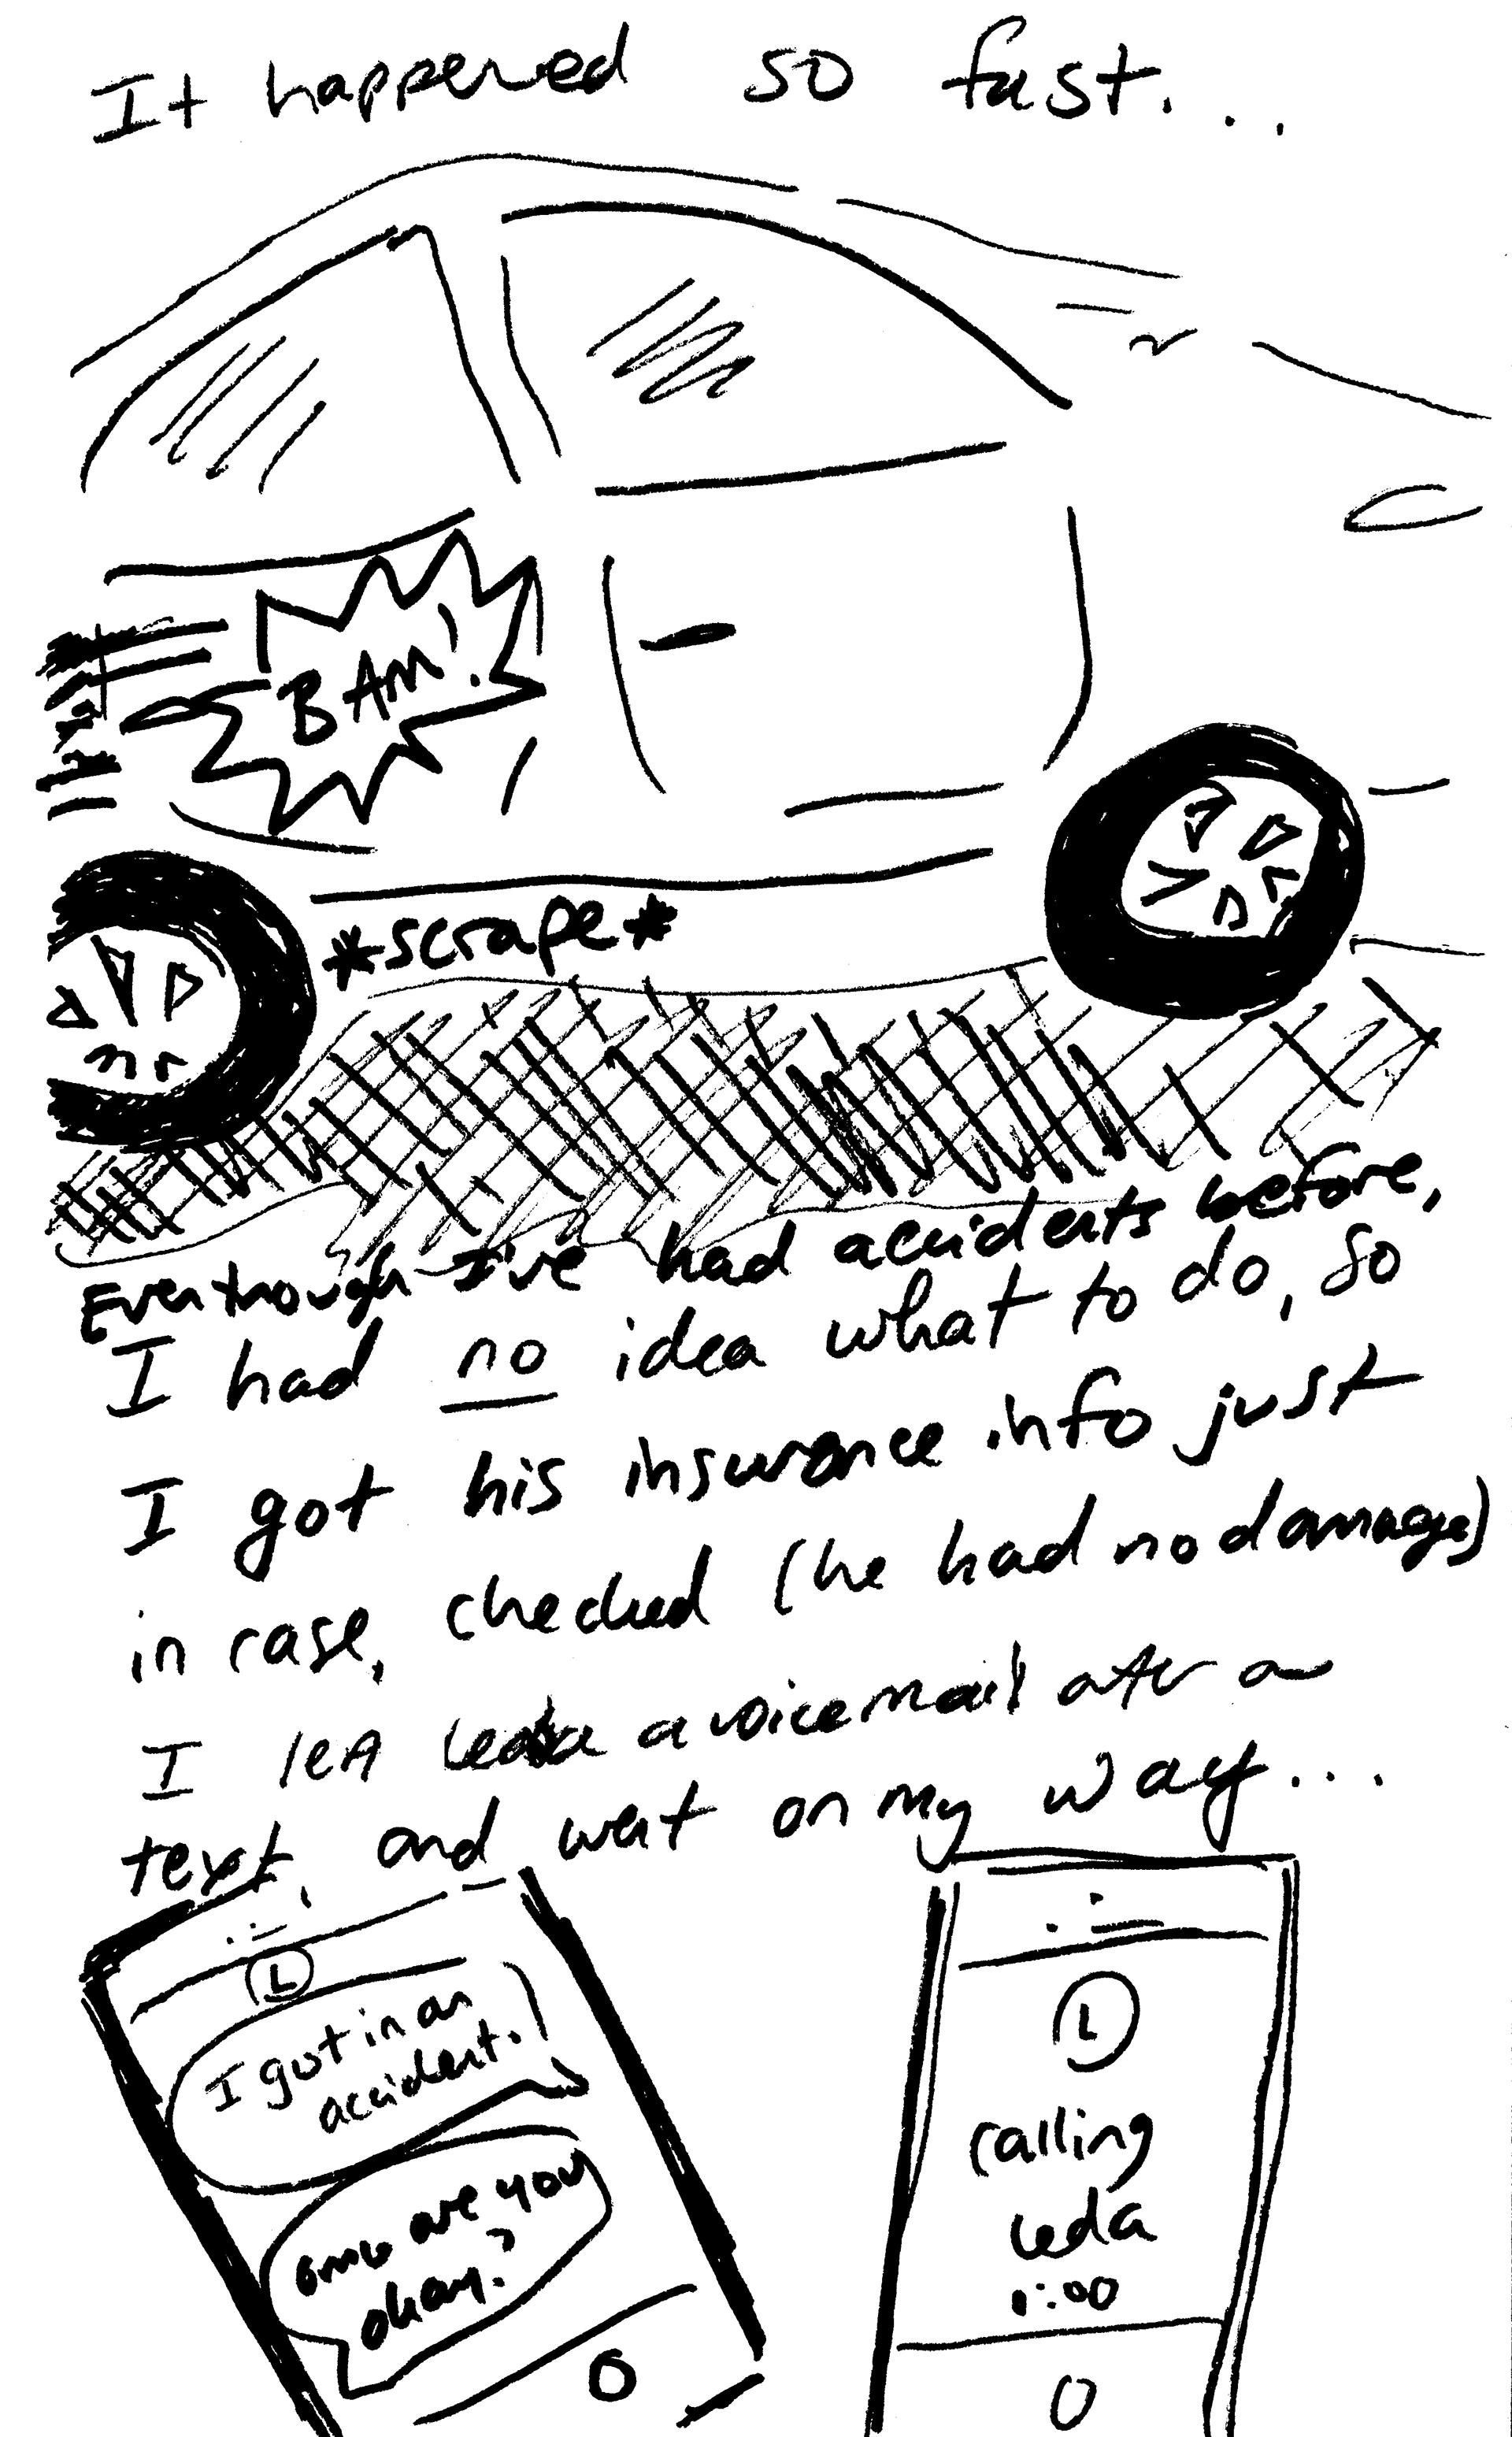 It happened so fast...
BAM!
*scrape*
Even though I've had accidents before,
I had no idea what to do, so
I got his insurance info just
in case, checked (he had no damage)
I left Leda a voicemail after a
text, and went on my way...
L
I got in an
accident.
omg are you
okay?
L
calling
Leda
1:00